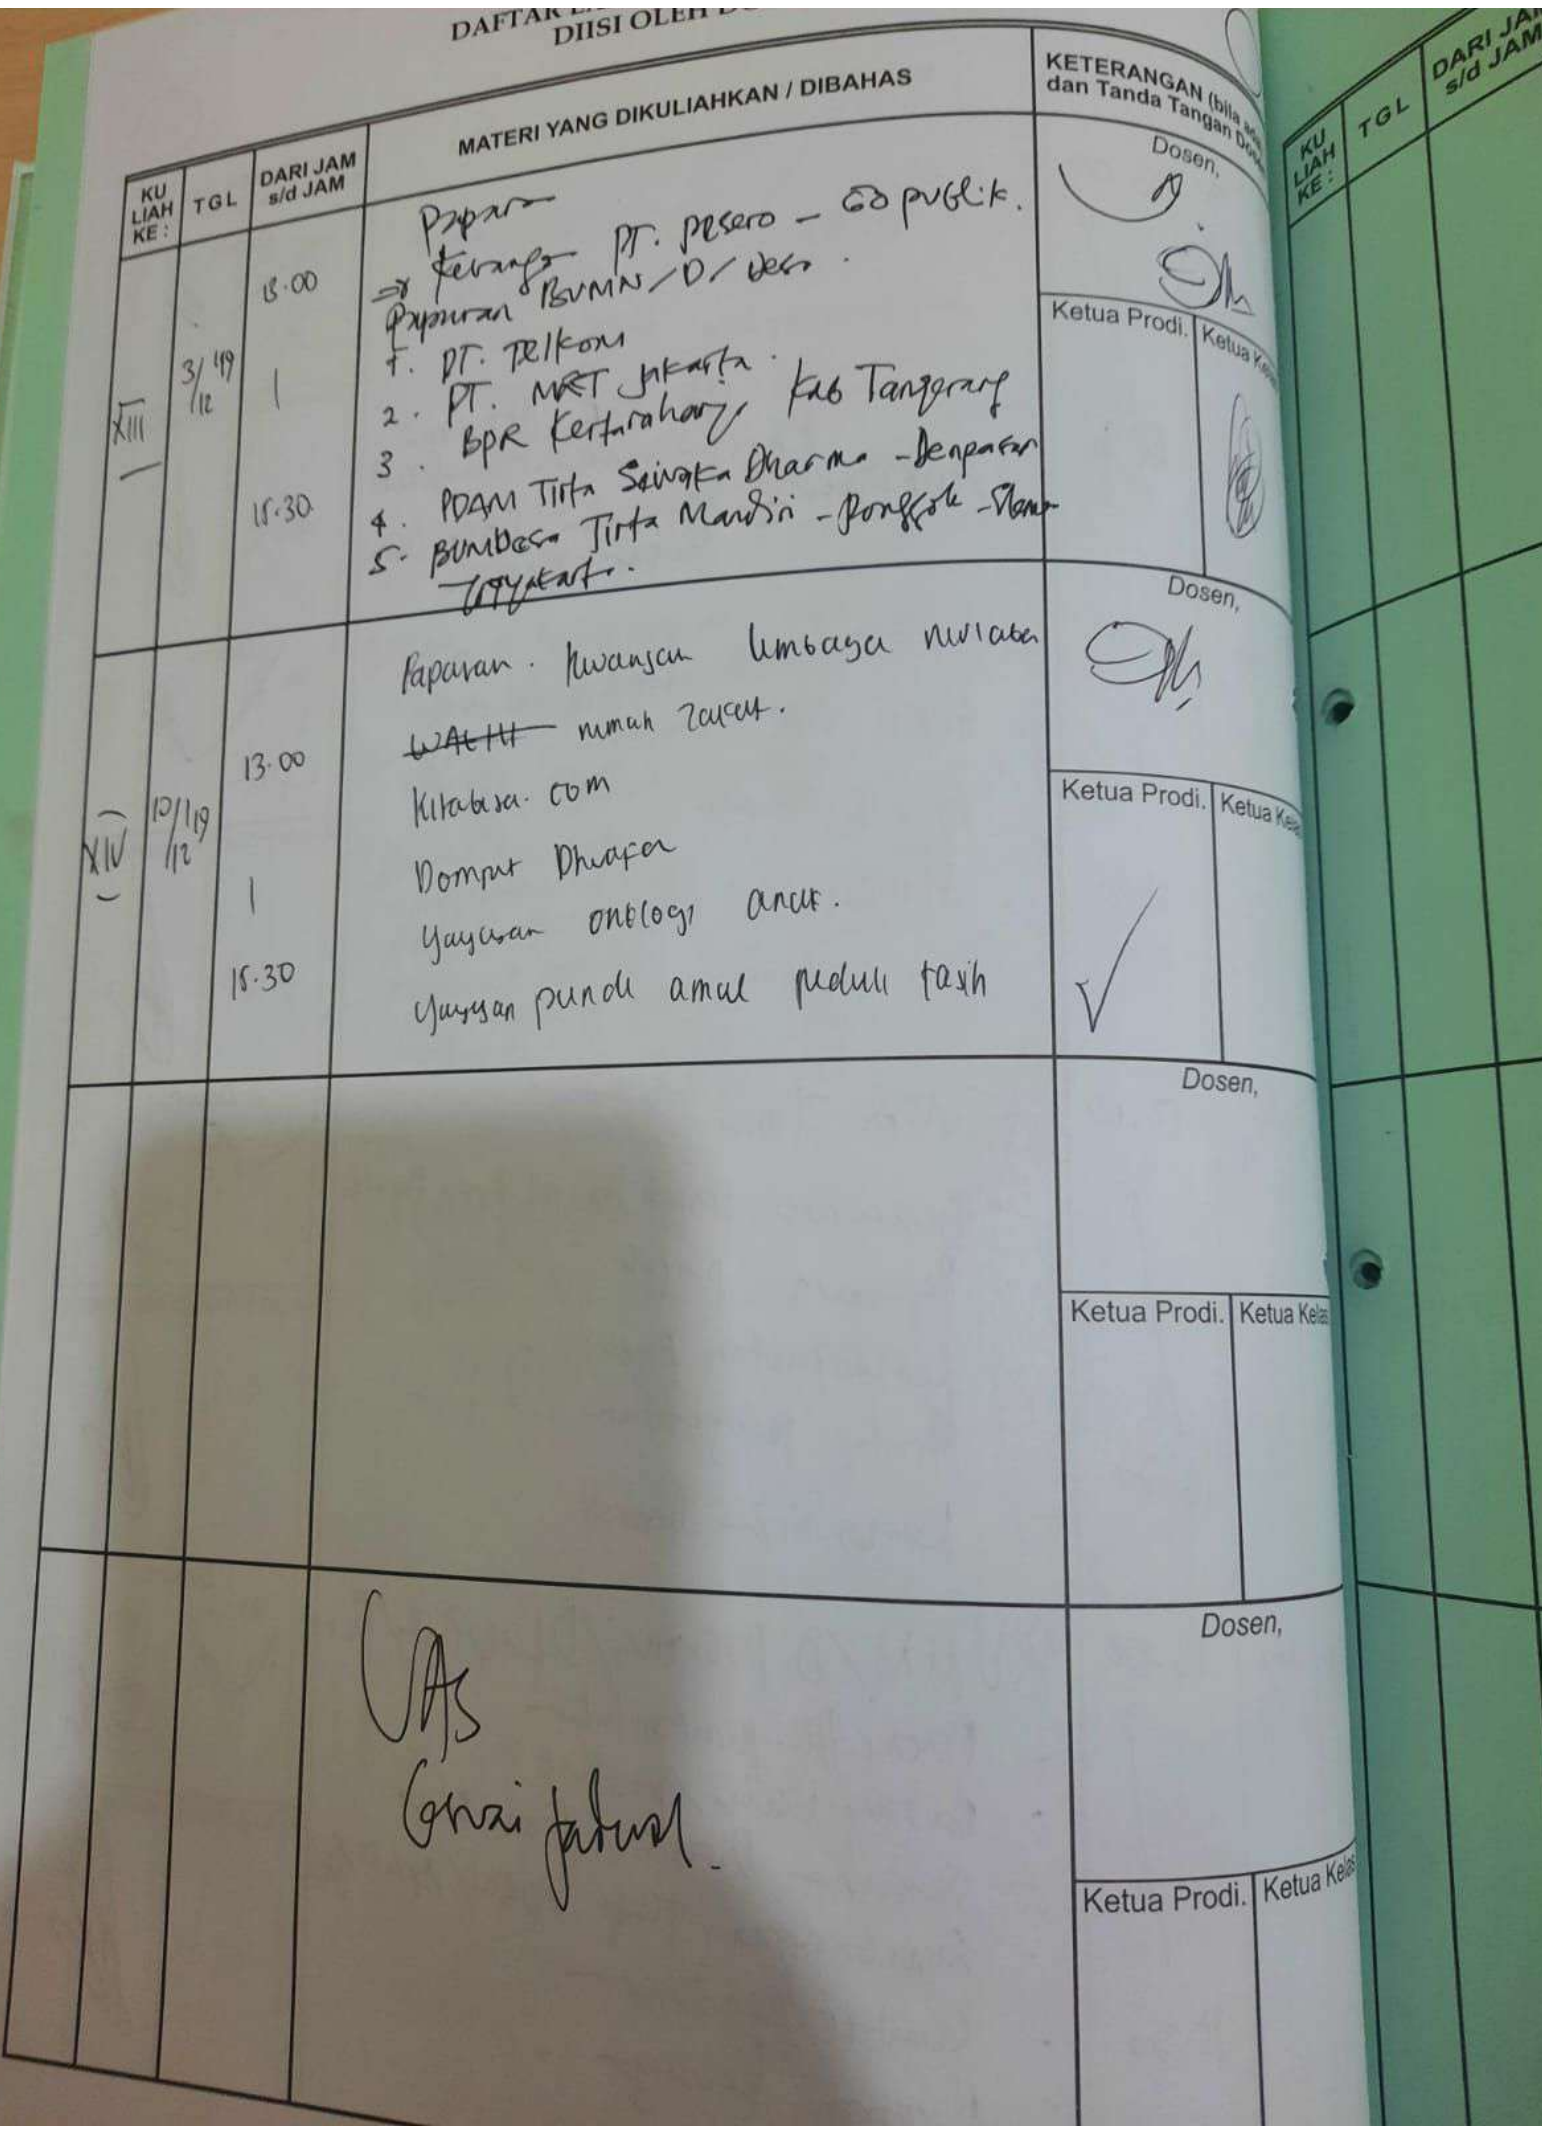 DAFTAR
DIISI OLEH
KU LIAH KE :
TGL
DARI JAM s/d JAM
MATERI YANG DIKULIAHKAN / DIBAHAS
KETERANGAN (bila
dan Tanda Tangan
XIII
3/12 '19
13.00
15.30
Paparan
PT. pesero - Go publik.
Paparan BUMN/D/Desa.
1. PT. Telkom
2. PT. MRT Jakarta.
3. BPR Kertaraharja Kab Tangerang
4. PDAM Tirta Sewaka Dharma - Denpasar
5. BUMDesa Tirta Mandiri - Ponggok -
Yogyakarta.
Dosen,
Ketua Prodi.
Ketua
XIV
10/12/19
13.00
15.30
Paparan. keuangan lembaga nirlaba
WALHI rumah zakat.
Kitabisa.com
Dompet Dhuafa
Yayasan onkologi anak.
Yayasan pundi amal peduli kasih
Dosen,
Ketua Prodi.
Ketua Kelas
Dosen,
Ketua Prodi.
Ketua Kelas
UAS
Sesuai jadwal.
Dosen,
Ketua Prodi.
Ketua Kelas
KU LIAH KE :
TGL
DARI JAM
s/d JAM